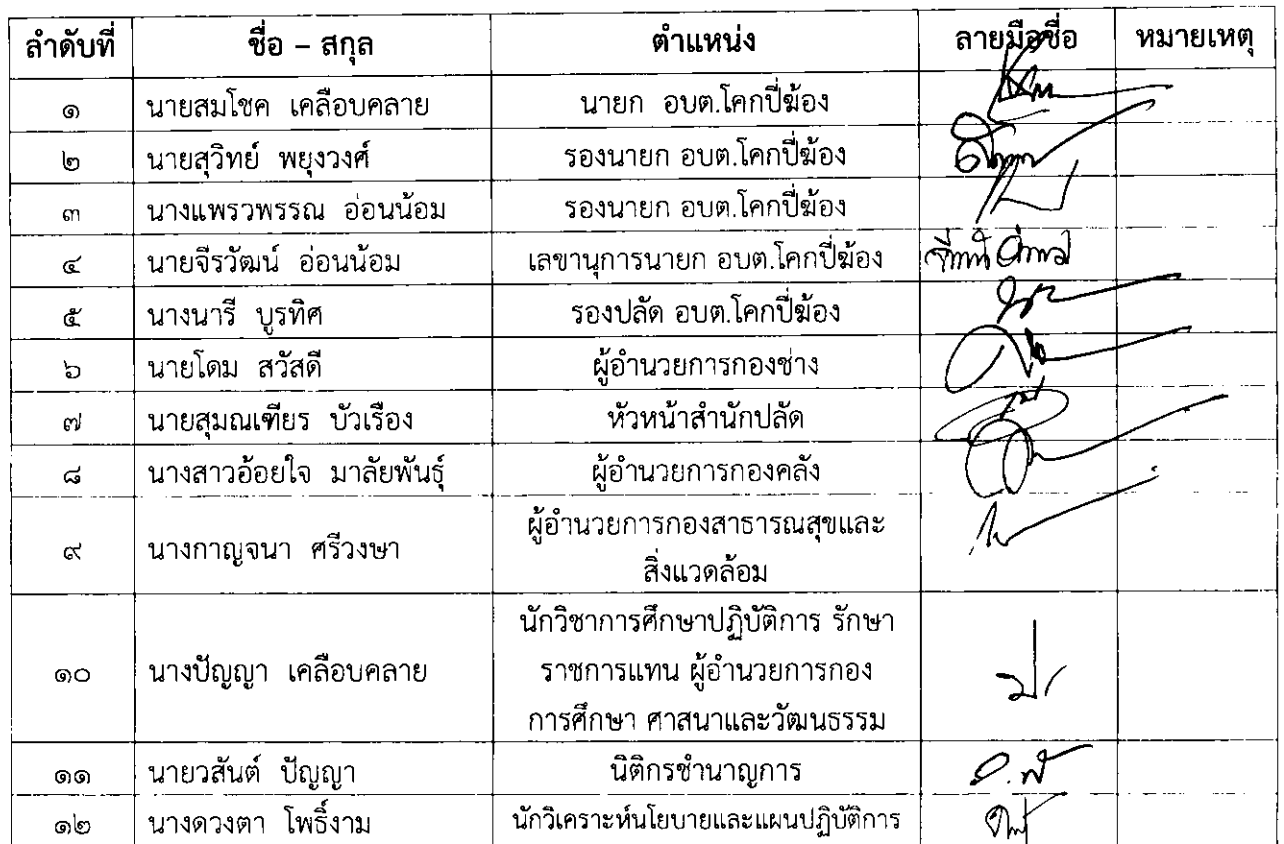 ลำดับที่ ชื่อ – สกุล ตำแหน่ง ลายมือชื่อ หมายเหตุ
๑ นายสมโชค เคลือบคลาย นายก อบต.โคกปี่ฆ้อง
๒ นายสุวิทย์ พยุงวงศ์ รองนายก อบต.โคกปี่ฆ้อง
๓ นางแพรวพรรณ อ่อนน้อม รองนายก อบต.โคกปี่ฆ้อง
๔ นายจีรวัฒน์ อ่อนน้อม เลขานุการนายก อบต.โคกปี่ฆ้อง
๕ นางนารี บูรทิศ รองปลัด อบต.โคกปี่ฆ้อง
๖ นายโดม สวัสดี ผู้อำนวยการกองช่าง
๗ นายสุมณเฑียร บัวเรือง หัวหน้าสำนักปลัด
๘ นางสาวอ้อยใจ มาลัยพันธุ์ ผู้อำนวยการกองคลัง
๙ นางกาญจนา ศรีวงษา ผู้อำนวยการกองสาธารณสุขและ
สิ่งแวดล้อม
๑๐ นางปัญญา เคลือบคลาย นักวิชาการศึกษาปฏิบัติการ รักษา
ราชการแทน ผู้อำนวยการกอง
การศึกษา ศาสนาและวัฒนธรรม
๑๑ นายวสันต์ ปัญญา นิติกรชำนาญการ
๑๒ นางดวงตา โพธิ์งาม นักวิเคราะห์นโยบายและแผนปฏิบัติการ